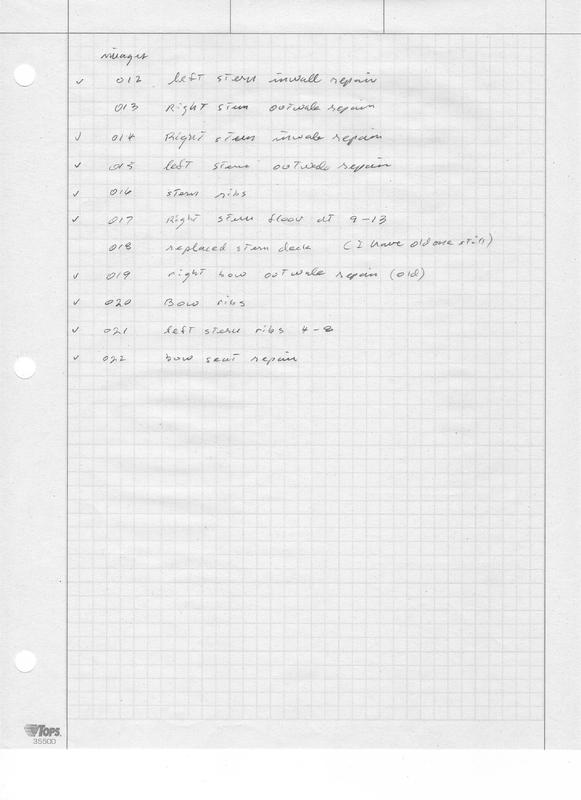 images
✓ 012 left stern inwall repair
013 Right stern outwale repair
✓ 014 Right stern inwale repair
✓ 015 left stern outwale repair
✓ 016 stern ribs
✓ 017 Right stern floor at 9-13
018 replaced stern deck (I have old one still)
✓ 019 right bow outwale repair (old)
✓ 020 Bow ribs
✓ 021 left stern ribs 4-8
✓ 022 bow seat repair
TOPS
35500